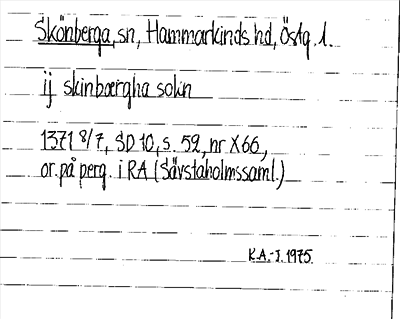 Skönberga, sn, Hammarkinds hd, Östg. l.
ij skinbærgha sokn
1371 8/7, SD 10, s. 59, nr X66,
or. på perg. i RA (Sävstaholmssaml.)
K.A.-I. 1975